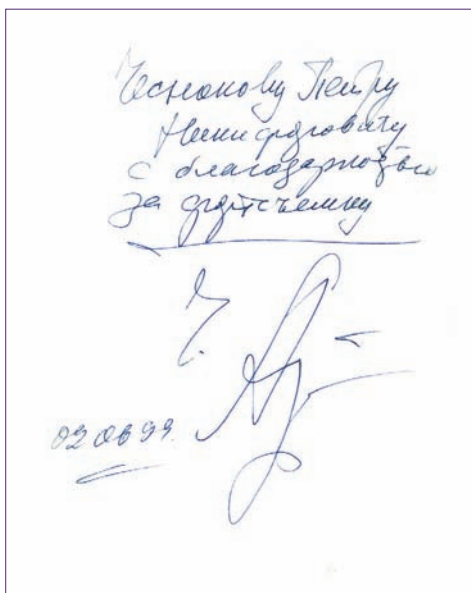 Чеснокову Петру
Никифоровичу
с благодарностью
за фотосъемку
Ч.
02 06 99.